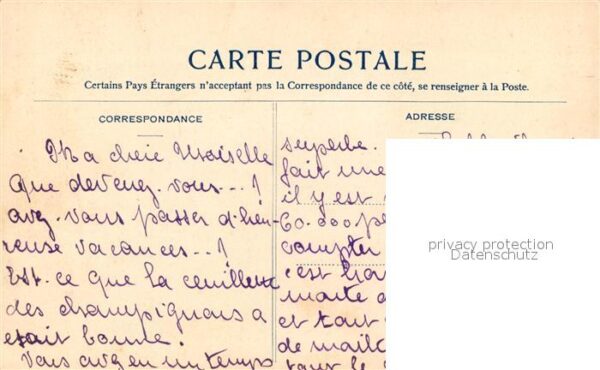 CARTE POSTALE
Certains Pays Étrangers n'acceptant pas la Correspondance de ce côté, se renseigner à la Poste.
CORRESPONDANCE
Ma chere
Que devenez-vous...!
avez-vous passer d'heu-
reuse vacances...!
Est-ce que la ceuillette
des champignons a
etait bonne.
Vous avez en un temps
ADRESSE
superbe.
fait une
il y est
60.000 pe
compter
c'est
monte
et tout
de
tout le
privacy protection
Datenschutz